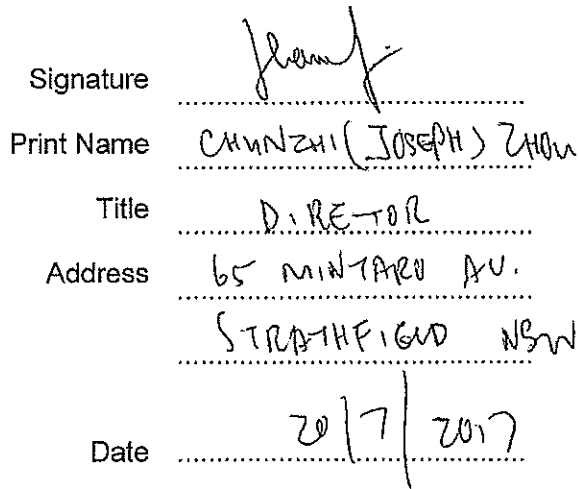 Signature
Print Name CHUNZHI (JOSEPH) ZHOU
Title DIRETOR
Address 65 MINTARO AV.
STRATHFIELD NSW
Date 20/7/2017